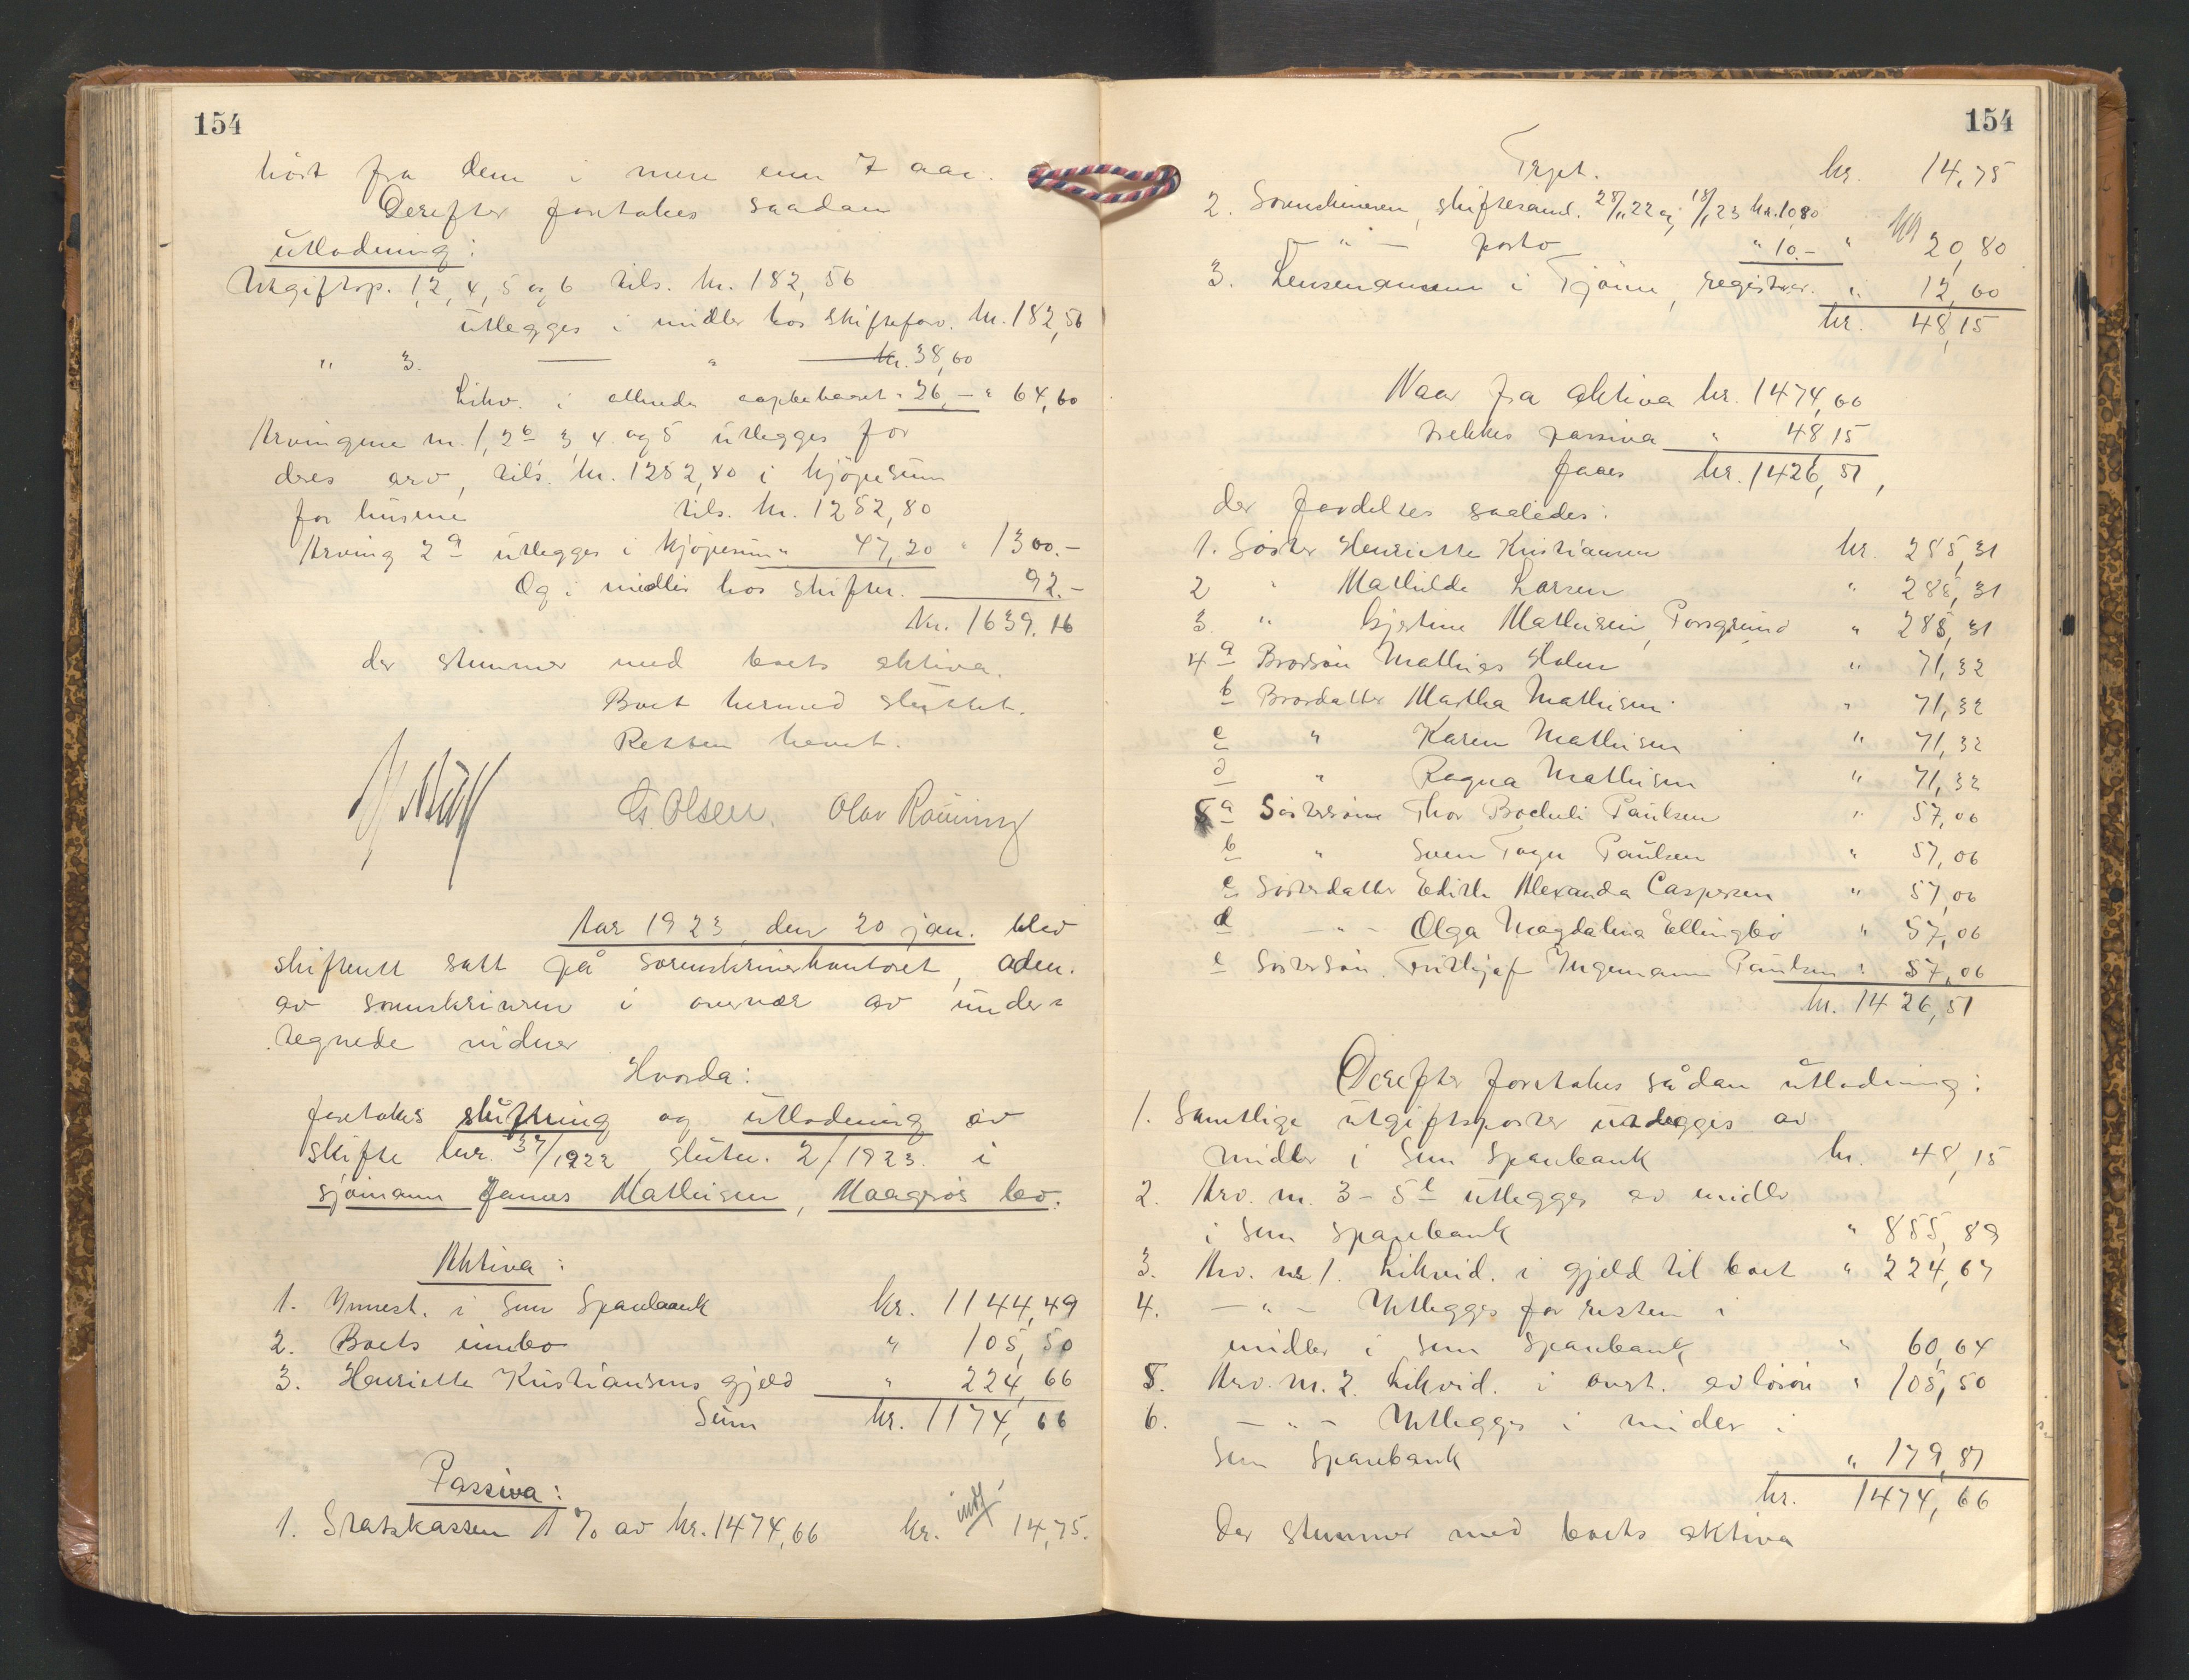 154
hört fra dem i mere enn 7 aar.
Derefter foretokes saadan
utlodning:
Utgiftsp. 1, 2, 4, 5 og 6 tils. kr. 182,56
utlegges i midler hos skifteforv. kr. 182,56
" 3. — " — kr. 38,60
Likv. i allerede oppebaaret " 26,— " 64,60
Arvingene nr. 1, 2b 3, 4 og 5 utlegges for
deres arv, tils. kr. 1252,80 i kjöpesum
for husene tils. kr. 1252,80
Arving 2a utlegges i kjöpesum " 47,20 " 1300.-
Og i midler hos skifter. 92.-
Kr. 1639.16
der stemmer med boets aktiva.
Boet hermed sluttet.
Retten hevet.
G. Olsen. Olav Rauning
Aar 1923, den 20 jan. blev
skifterett satt på sorenskriverkontoret, adm.
av sorenskriveren i overvær av under=
tegnede vidner
Hvorda:
foretokes slutning og utlodning av
skifte lnr. 37/1922 slutn. 2/1923 i
sjömann James Mathisen, Maagerös bo.
Aktiva:
1. Innest. i Sem Sparebank kr. 1144,49
2. Boets innbo " 105,50
3. Henriette Kristiansens gjeld " 224,66
Sum kr. 1174,66
Passiva:
1. Statskassen 1 % av kr. 1474,66 kr. indf 14,75.
154
Trpt. kr. 14,75
2. Sorenskriveren, skiftesaml. 28/11 22 og 18/1 23 kr. 10,80
— " — porto " 10.- " 20,80
3. Lensmannen i Tjöme, registrer. " 12,60
kr. 48,15
Naar fra aktiva kr. 1474,66
trekkes passiva " 48,15
faaes kr. 1426,51,
der fordeltes saaledes:
1. Söster Henriette Kristiansen kr. 285,31
2 " Mathilde Larsen " 285,31
3. " Gjertine Mathisen, Porsgrund " 285,31
4 a Brorsön Mathias Holm " 71,32
b Brordatter Martha Mathisen " 71,32
c " Karen Mathisen " 71,32
d " Ragna Mathisen " 71,32
5 a Söstersönn Thor Bocheli Paulsen " 57,06
b " Svein Tager Paulsen " 57,06
c Sösterdatter Edith Alexandra Caspersen " 57,06
d — " — Olga Magdalena Ellingbö " 57,06
e Söstersön Frithjof Ingemann Paulsen " 57,06
kr. 1426,51
Derefter foretokes sådan utlodning:
1. Samtlige utgiftsposter utlegges av
midler i Sem Sparebank kr. 48,15
2. Arv. nr. 3 - 5e utlegges av midler
i Sem Sparebank " 855,89
3. Arv. nr 1. Likvid. i gjeld til boet " 224,67
4. — " — Utlegges for resten i
midler i Sem Sparebank " 60,64
5. Arv. nr. 2. Likvid. i overt. avlösöre " 105,50
6. — " — Utlegges i midler i
Sem Sparebank " 179,81
kr. 1474,66
der stemmer med boets aktiva